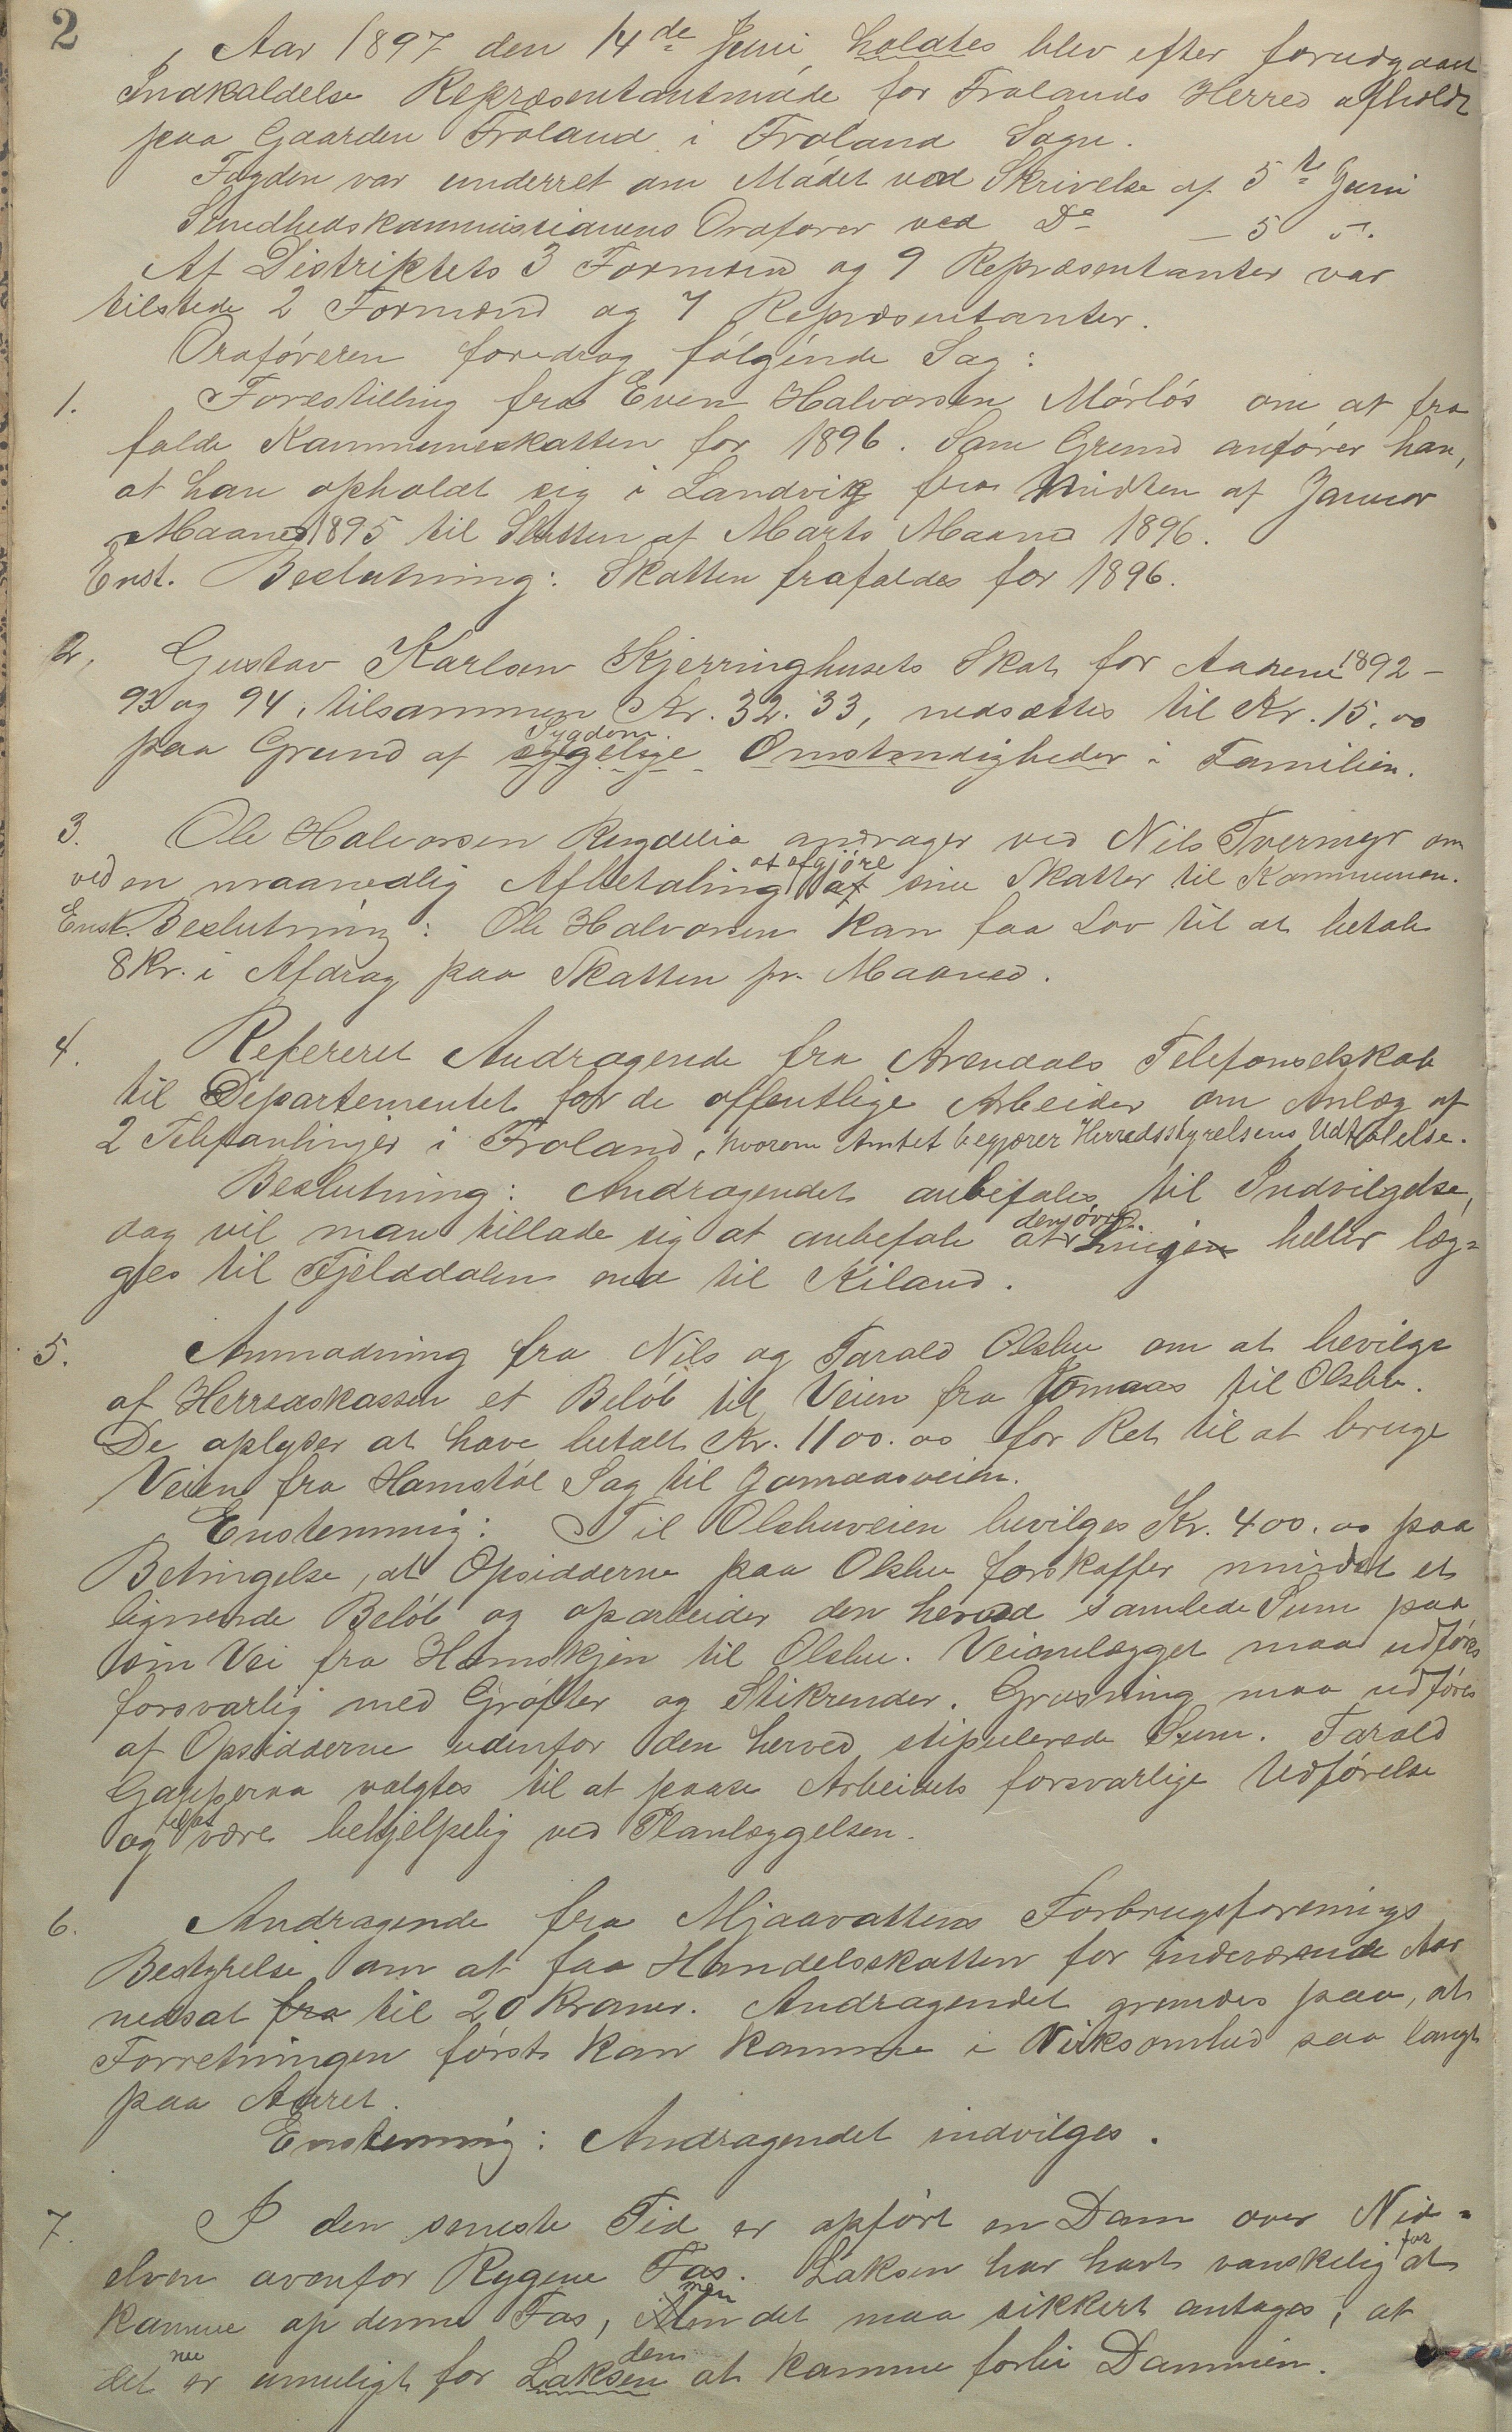 2
Aar 1897 den 14de Juni holdtes blev efter forudgaaet
Indkaldelse Repræsentantmøde for Frolands Herred afholdt
paa Gaarden Froland i Froland Sogn.
Fogden var underret om Mødet ved Skrivelse af 5te Juni
Sundhedskommissionens Ordfører ved Do — 5 s.
Af Distriktets 3 Formænd og 9 Repræsentanter var
tilstede 2 Formænd og 7 Repræsentanter.
Ordføreren foredrog følgende Sag:
1. Forestilling fra Even Halvorsen Mørløs om at fra
falde Kommuneskatten for 1896. Som Grund anfører han,
at han opholdt sig i Landvig fra Midten af Januar
Maaned 1895 til Slutten af Marts Maaned 1896.
Enst. Beslutning: Skatten frafaldes for 1896.
2. Gustav Karlsen Kjerringhusets Skat for Aarene 1892 -
93 og 94, tilsammen Kr. 32.33, nedsættes til Kr. 15.00
Sygdom
paa Grund af syggelige Omstendigheder i Familien.
3. Ole Halvorsen Rugdelia andrager ved Nils Tvermyr om
at afgjøre
ved en maanedlig Afbetaling af sine Skatter til Kommunen.
Enst. Beslutning: Ole Halvorsen kan faa Lov til at betale
8 Kr. i Afdrag paa Skatten pr. Maaned.
4. Refereret Andragende fra Arendals Telefonselskab
til Departementet for de offentlige Arbeider om Anlæg af
2 Telefonlinjer i Froland, hvorom Amtet begjærer Herredsstyrelsens Udtalelse.
Beslutning: Andragendet anbefales til Indvilgelse,
den øvre
dog vil man tillade sig at anbefale at Linjen heller læg=
ges til Fjelddalen end til Kiland.
5. Anmodning fra Nils og Tarald Olsbu om at bevilge
af Herredskassen et Beløb til Veien fra Jomaas til Olsbu.
De oplyser at have betalt Kr. 1100.00 for Ret til at bruge
Veien fra Hamstøl Sag til Jomaasveien.
Enstemmig: Til Olsbuveien bevilges Kr. 400.00 paa
Betingelse, at Opsidderne paa Olsbu forskaffer mindst et
lignende Beløb og oparbeider den herved samlede Sum paa
sin Vei fra Homskjen til Olsbu. Veianlægget maa udføres
forsvarlig med Grøfter og Stikrender. Grusning maa udføres
af Opsidderne udenfor den herved stipulerede Sum. Tarald
Gauperaa valgtes til at paase Arbeidets forsvarlige Udførelse
til at
og være behjelpelig ved Planlæggelsen.
6. Andragende fra Mjaavattens Forbrugsforenings
Bestyrelse om at faa Handelsskatten for indeværende Aar
nedsat fra til 20 Kroner. Andragendet grundes paa, at
Forretningen først kan komme i Virksomhed saa langt
paa Aaret.
Enstemmig: Andragendet indvilges.
7. I den seneste Tid er opført en Dam over Nid=
for
elven ovenfor Rygene Fos. Laksen har havt vanskelig at
men
komme op denne Fos, Men det maa sikkert antages, at
nu dem
det er umuligt for Laksen at komme forbi Dammen.